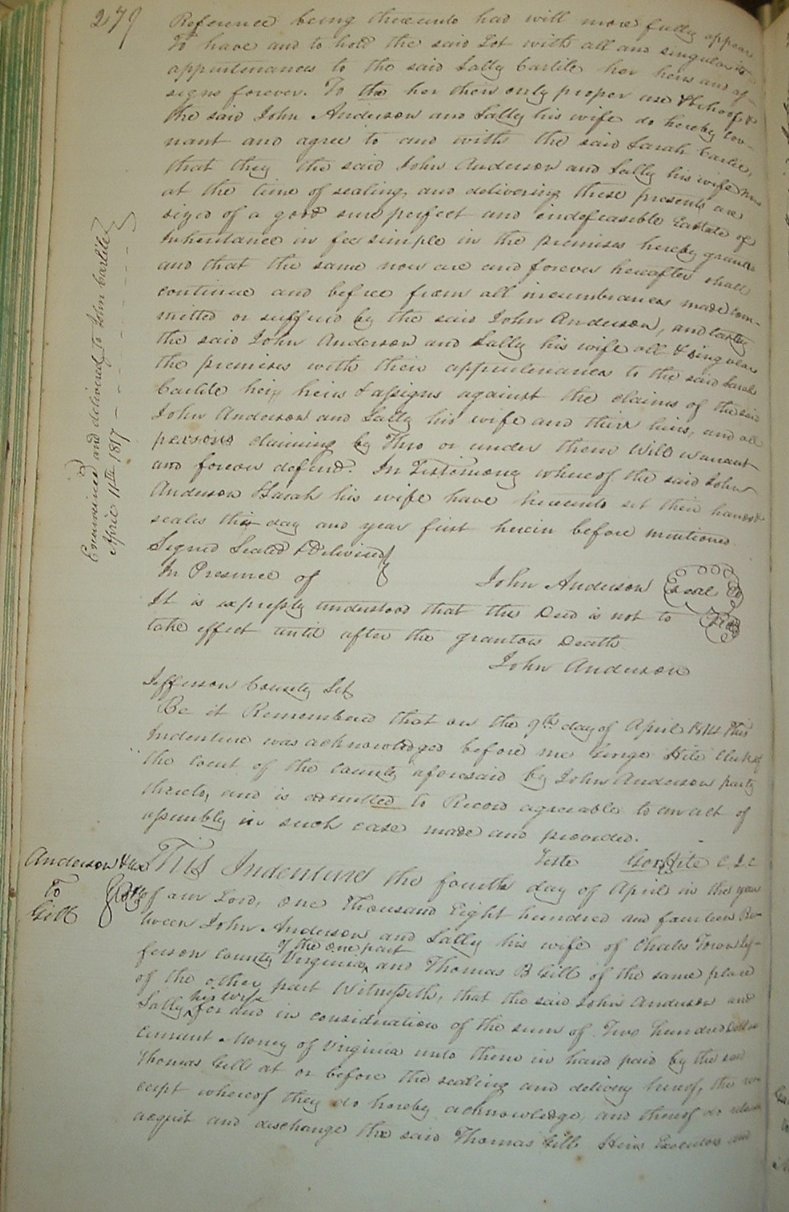 279
Reference being thereunto had will more fully appear
To have and to hold the said Lot with all and singular its
appurtenances to the said Sally Carlile her heirs and as-
signs forever. To the her their only proper use & behoof &
the said John Anderson and Sally his wife do hereby cov-
nant and agree to and with the said Sarah Carlile,
that they the said John Anderson and Sally his wife now
at the time of sealing, and delivering these presents are
sized of a good sure perfect and indefeasible Eastate of
Inheritance in fee simple in the premises hereby granted
and that the same now are and forever hereafter shall
continue and be free from all incumbrances made com-
mitted or suffered by the said John Anderson, and lastly
the said John Anderson and Sally his wife all & singular
the premises with their appurtenances to the said Sarah
Carlile her heirs & assigns against the claims of the said
John Anderson and Sally his wife and their heirs, and all
persons claiming by Thro or under them Will warrant
and forever defend. In Testimony whereof the said John
Anderson & Sarah his wife have hereunto set their hands &
seales this day and year first herein before mentioned
Signed Sealed & Delivered
In Presence of
John Anderson Seal
It is expressly understood that this Deed is not to Seal
take effect until after the grantors Death
John Anderson
Jefferson County Sct
Be it Remembered that on the 9th day of April 1814 This
Indenture was acknowledged before me George Hite Clerk of
the court of the county aforesaid by John Anderson party
thereto, and is admitted to Record agreeable to an act of
assembly in such case made and provided.
Teste Geo Hite C J C
Examined and delivered to John Carlile
April 11th 1817
Anderson & ux
To
Gill
Deed
This Indenture the fourth day of April in the year
of our Lord, One Thousand Eight hundred and fourteen Be-
tween John Anderson and Sally his wife of Charles Town Jef-
ferson County Virginia of the one part and Thomas B Gill of the same place
of the other part Witnesseth, that the said John Anderson and
Sally his wife for and in consideration of the sum of Two hundred Dollars
Current Money of Virginia unto them in hand paid by the said
Thomas Gill at or before the sealing and delivery hereof, the re-
ceipt whereof they do hereby acknowledge, and thereof do release
acquit and discharge the said Thomas Gill Heirs Executors and